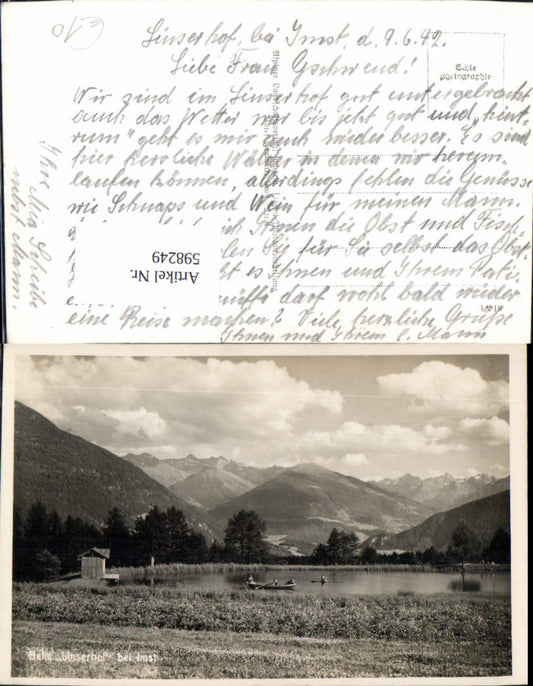 Linserhof, bei Imst, d. 9.6.42.
Liebe Frau Gschwend!
Wir sind im Linserhof gut untergebracht
auch das Wetter war bis jetzt gut und „hint-
rum" geht es mir auch wieder besser. Es sind
hier herrliche Wälder in denen wir herum-
laufen können, allerdings fehlen die Genüsse
wie Schnaps und Wein für meinen Mann.
ich Ihnen die Obst und
len Sie für Sie selbst das Obst.
t es Ihnen und Ihrem
darf wohl bald wieder
eine Reise machen? Viele herzliche Grüße
Ihnen und Ihrem l. Mann
Ihre Mia
und Mann.
Echte
Photographie
Artikel Nr.
598249
Beim „Linserhof" bei Imst